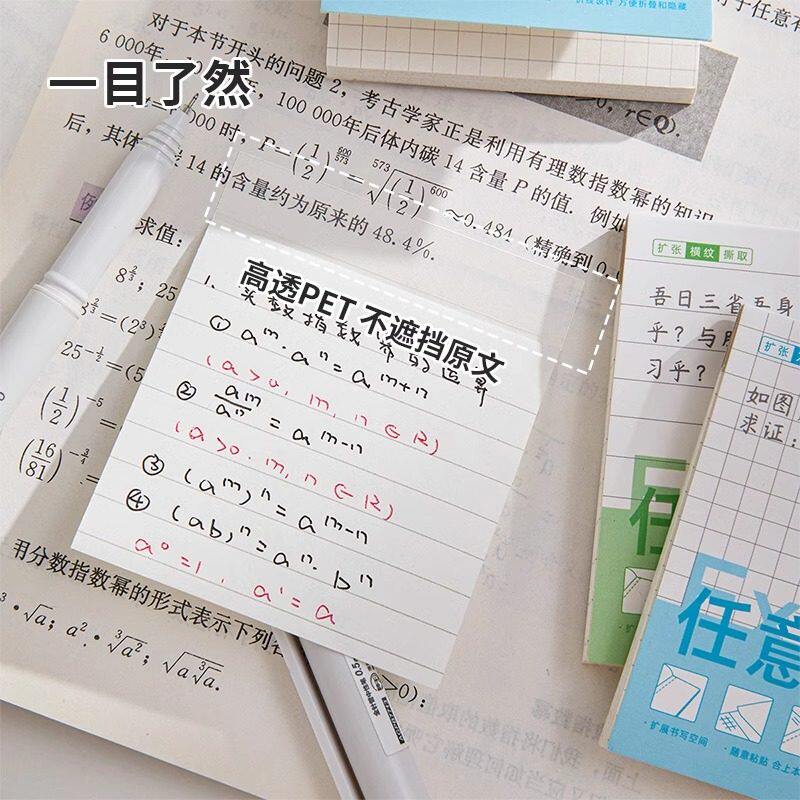 一目了然
对于本节开头的问题 2，考古学家正是利用有理数指数幂的知识
6 000年
100 000年后体内碳 14 含量 P 的值. 例如
>0, r∈Q).
000 时，P=(1/2)^(6000/573)=\sqrt[573]{(1/2)^600}≈0.484（精确到 0.0
后，其体
碳 14 的含量约为原来的 48.4%.
求值：
8^(2/3)；25
8^(2/3)=(2³)
25^(-1/2)=(5
(1/2)^(-5)
(16/81)^(-3/4)
用分数指数幂的形式表示下列各
³·√a；a²·∛a²；√(a∛a).
>0)：
高透PET 不遮挡原文
1.
① aᵐ·aⁿ=aᵐ⁺ⁿ
(a>0, m, n∈R)
② aᵐ/aⁿ=aᵐ⁻ⁿ
(a>0. m, n∈R)
③ (aᵐ)ⁿ=aᵐ⁻ⁿ
④ (ab)ⁿ=aⁿ·bⁿ
a⁰=1, a¹=a
扩张 横纹 撕取
吾日三省吾身
乎？与
习乎？
任
扩张
如图
求证：
任意
·扩展书写空间
·随意粘贴 合上本
方便折叠和隐藏